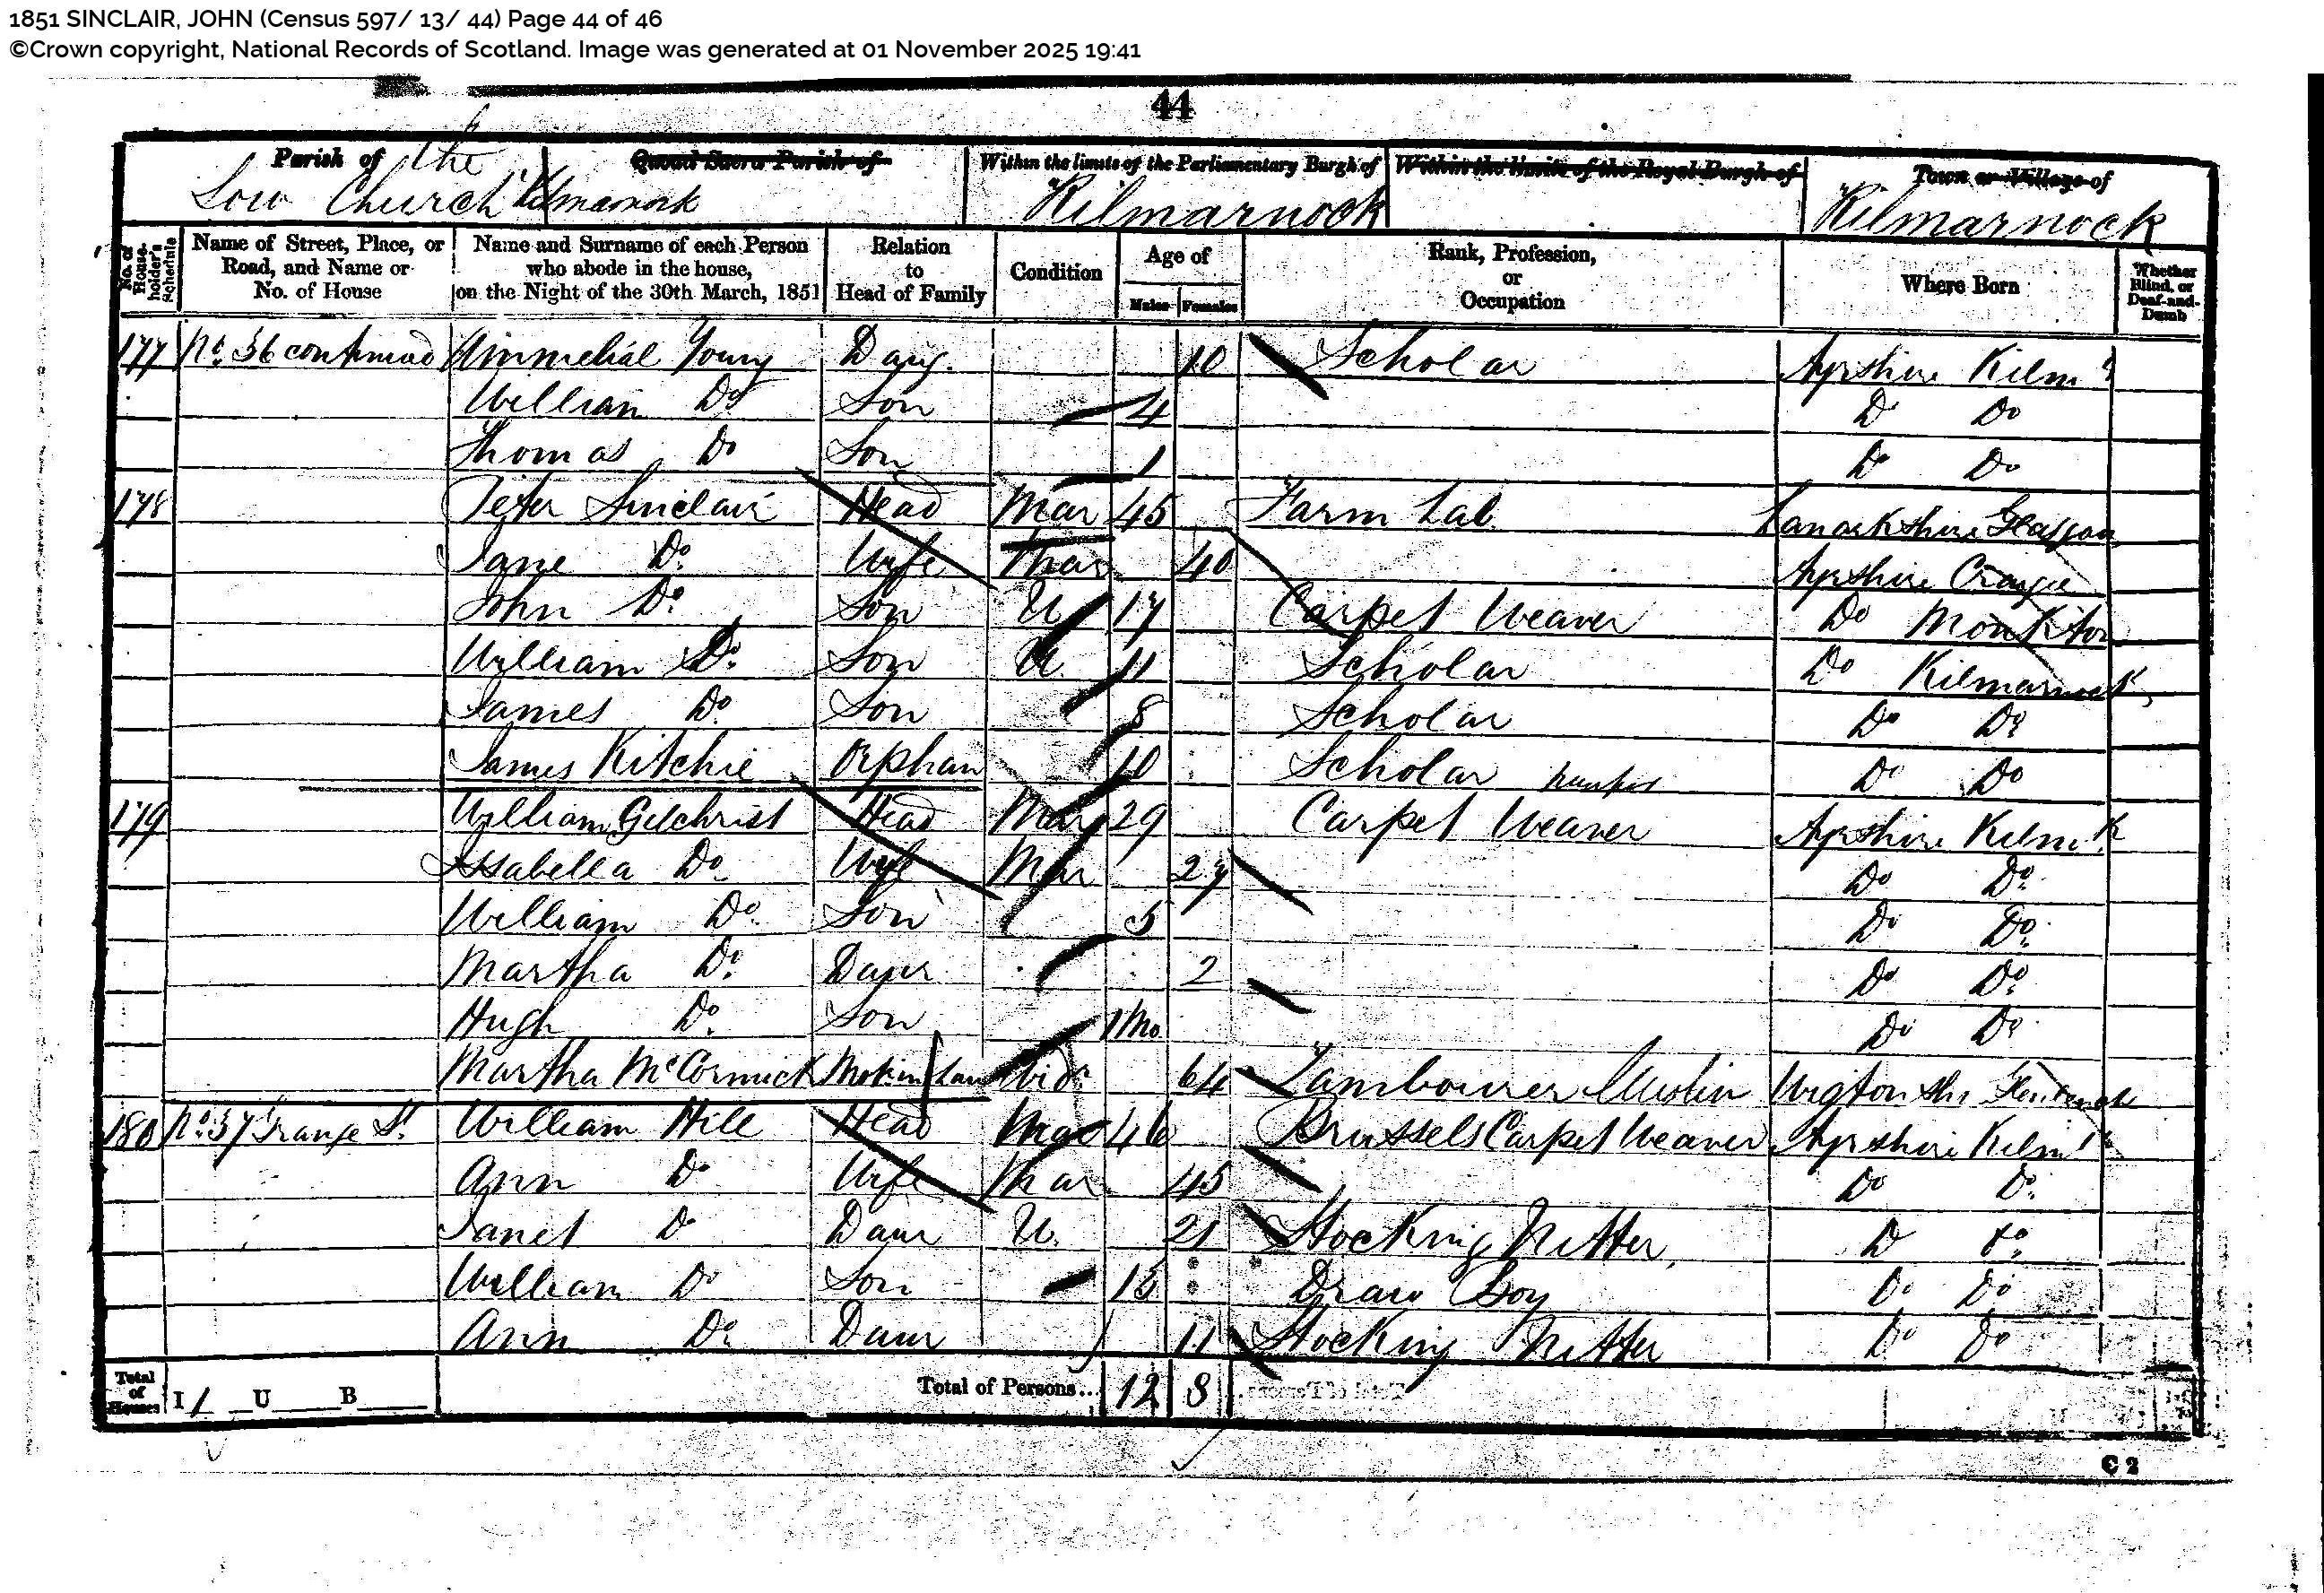 1851 SINCLAIR, JOHN (Census 597/ 13/ 44) Page 44 of 46
©Crown copyright, National Records of Scotland. Image was generated at 01 November 2025 19:41
44
Parish of the Low Church Kilmarnock
Quoad Sacra Parish of
Within the limits of the Parliamentary Burgh of Kilmarnock
Within the limits of the Royal Burgh of
Town or Village of Kilmarnock
No. of House-holder's Schedule
Name of Street, Place, or Road, and Name or No. of House
Name and Surname of each Person who abode in the house, on the Night of the 30th March, 1851
Relation to Head of Family
Condition
Age of
Males Females
Rank, Profession, or Occupation
Where Born
Whether Blind, or Deaf-and-Dumb
177 No. 36 continued Young Daug. 10 Scholar Ayrshire Kilmk
William Do Son 4 D Do
Thomas Do Son 1 Do Do
178 Peter Sinclair Head Mar 45 Farm Lab. Lanarkshire Glasgow
Jane Do. Wife Mar 40 Ayrshire Craigie
John Do. Son U 17 Carpet Weaver Do Monkton
William Do. Son U. 11 Scholar Do Kilmarnock
James Do. Son 8 Scholar Do Do
James Ritchie Orphan 10 Scholar Do Do
179 William Gilchrist Head Mar 29 Carpet Weaver Ayrshire Kilm.k
Issabella Do. Wife Mar 27 Do Do.
William Do. Son 5 Do Do.
Martha Do. Daur 2 Do Do.
Hugh Do. Son 1Mo Do Do.
Martha McCormick Moth in Law Widr 64 Tambourer Muslin Wigton Shr
180 No. 37 Grange St. William Hill Head Mar 46 Brussels Carpet Weaver Ayrshire Kilmk
Ann Do Wife Mar 45 Do Do.
Janet Do Daur U. 21 Stocking Nitter, D Do.
William Do Son 15 Draw Boy Do Do
Ann Do. Daur 11 Stocking Nitter Do Do
Total of Houses I 1 U B
Total of Persons... 12 8
C 2